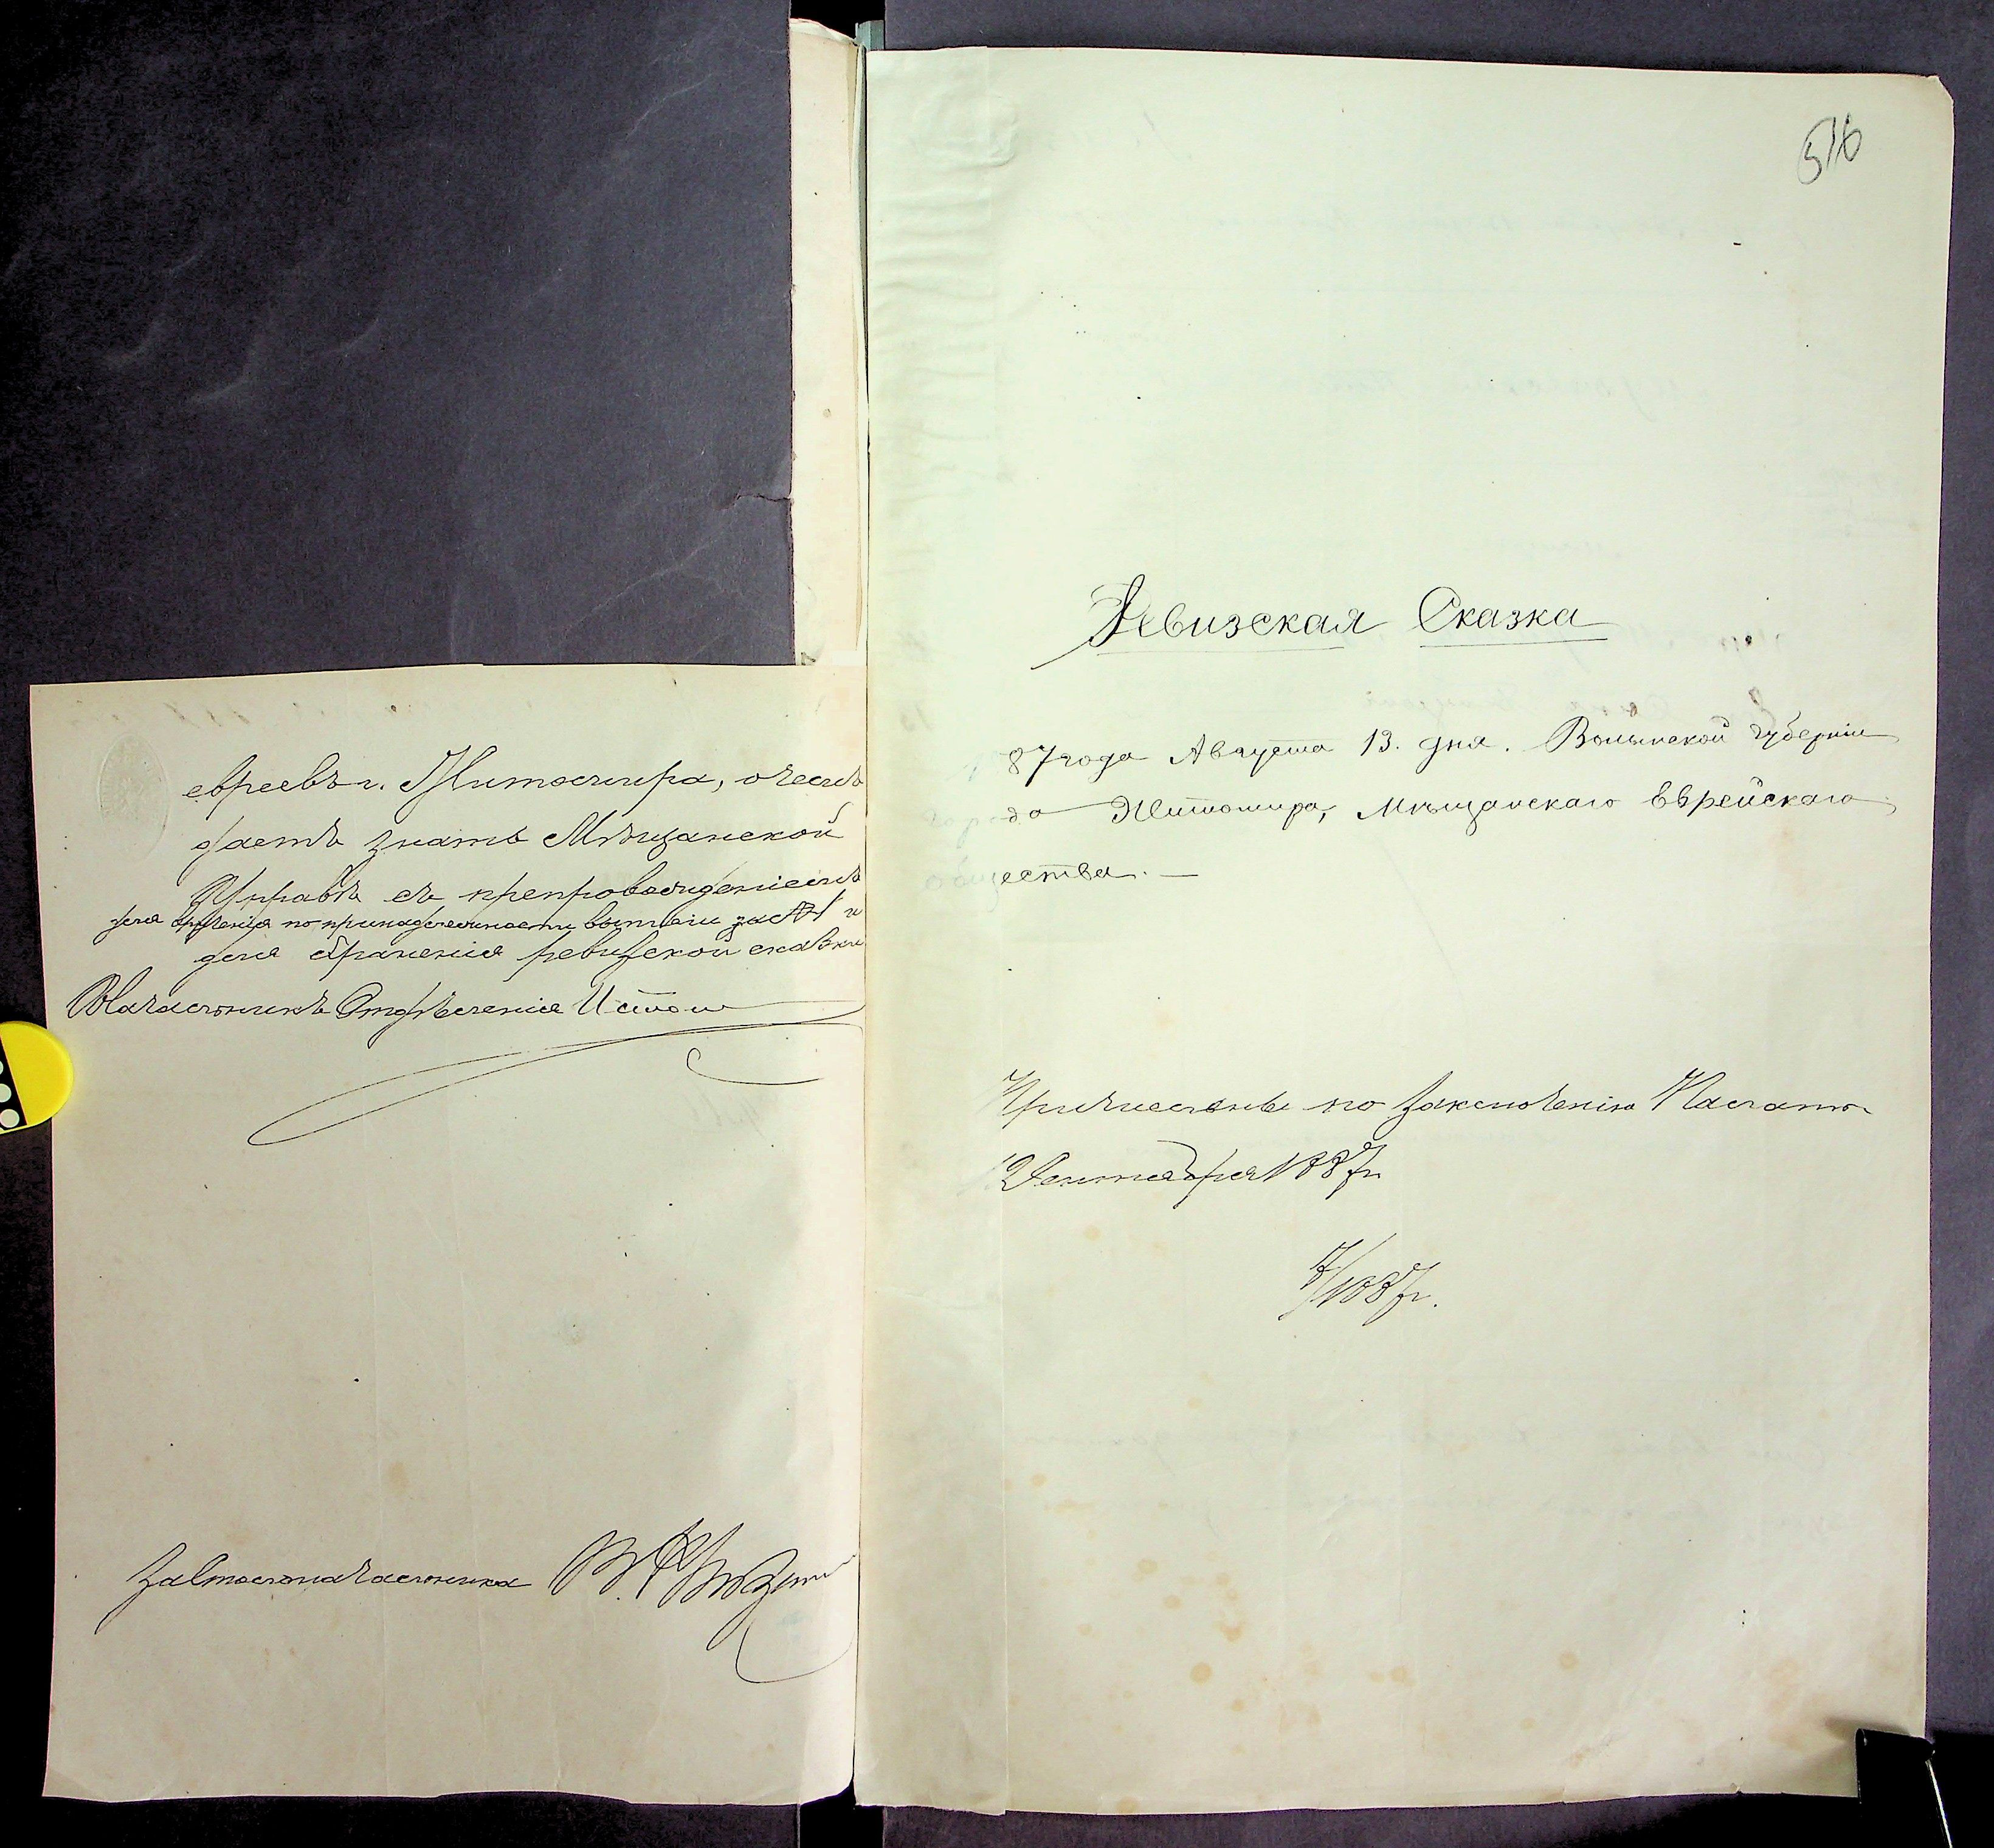 евреевъ г. Житомира, о чемъ
даетъ знать Мѣщанской
Управѣ съ препровожденіемъ
для врученія по принадлежности выписи за № и
для храненія ревизской сказки
Начальникъ Отдѣленія
За Столоначальника
516
Ревизская Сказка
87 года Августа 13. дня. Волынской губерніи
города Житомира, Мѣщанскаго Еврейскаго
общества. —
Причислены по заключенію Палаты
Сентября 1887 г.
1887 г.